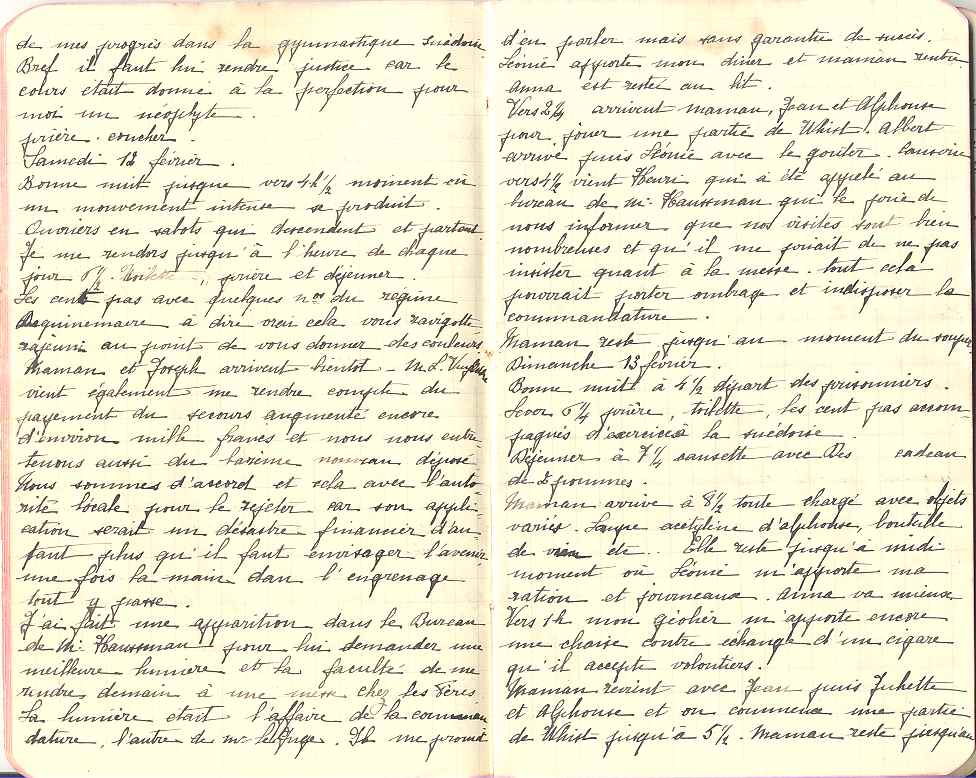 de mes progrès dans la gymnastique suédoise.
Bref il faut lui rendre justice car le
cours était donné à la perfection pour
moi un néophyte.
prière. coucher.
Samedi 12 février.
Bonne nuit jusque vers 4h½ moment où
un mouvement intense se produit.
Ouvriers en sabots qui descendent et partent.
Je me rendors jusqu'à l'heure de chaque
jour 6½. Toilette, prière et déjeuner.
Les cent pas avec quelques nos du régime
à dire vrai cela vous ravigotte
rajeuni au point de vous donner des couleurs.
Maman et Joseph arrivent bientôt. M. L.
vient également me rendre compte du
payement du secours augmenté encore
d'environ mille francs et nous nous entre
tenons aussi du barème nouveau déposé
Nous sommes d'accord et cela avec l'auto
rité locale pour le rejeter car son appli
cation serait un désastre financier d'au
tant plus qu'il faut envisager l'avenir
une fois la main dan l'engrenage
tout y passe.
J'ai fait une apparition dans le Bureau
de Mr Haussman pour lui demander une
meilleure lumière et la faculté de me
rendre demain à une messe chez les Pères.
La lumière était l'affaire de la comman
dature, l'autre de mr le Juge. Il me promit
d'en parler mais sans garantie de succès.
Léonie apporte mon diner et maman rentre.
Anna est resté au lit.
Vers 2¼ arrivent maman, Jean et Alphonse
pour jouer une partie de Whist. Albert
arrive puis Léonie avec le goûter. Causerie
vers 4½ vient Henri qui a été appelé au
bureau de Mr Haussman qui le prie de
nous informer que nos visites sont bien
nombreuses et qu'il me priait de ne pas
insister quant à la messe. tout cela
pourrait porter ombrage et indisposer la
commandature.
Maman reste jusqu'au moment du souper
Dimanche 13 février.
Bonne nuit à 4½ départ des prisonniers.
Lever 6¼ prière, toilette, les cent pas accom=
pagnés d'exercices à la suédoise.
Déjeuner à 7¼ causette avec Des cadeau
de 2 pommes.
Maman arrive à 8½ toute chargé avec objets
variés. Lampe acetylène d'alphonse, bouteille
de vin etc.. Elle reste jusqu'à midi
moment où Léonie m'apporte ma
ration et fourneaux. Anna va mieux.
Vers 1h mon géolier m'apporte encore
une chaise contre echange d'un cigare
qu'il accepte volontiers.
Maman revint avec Jean puis Juliette
et Alphonse et on commence une partie
de Whist jusqu'à 5½. Maman reste jusqu'au